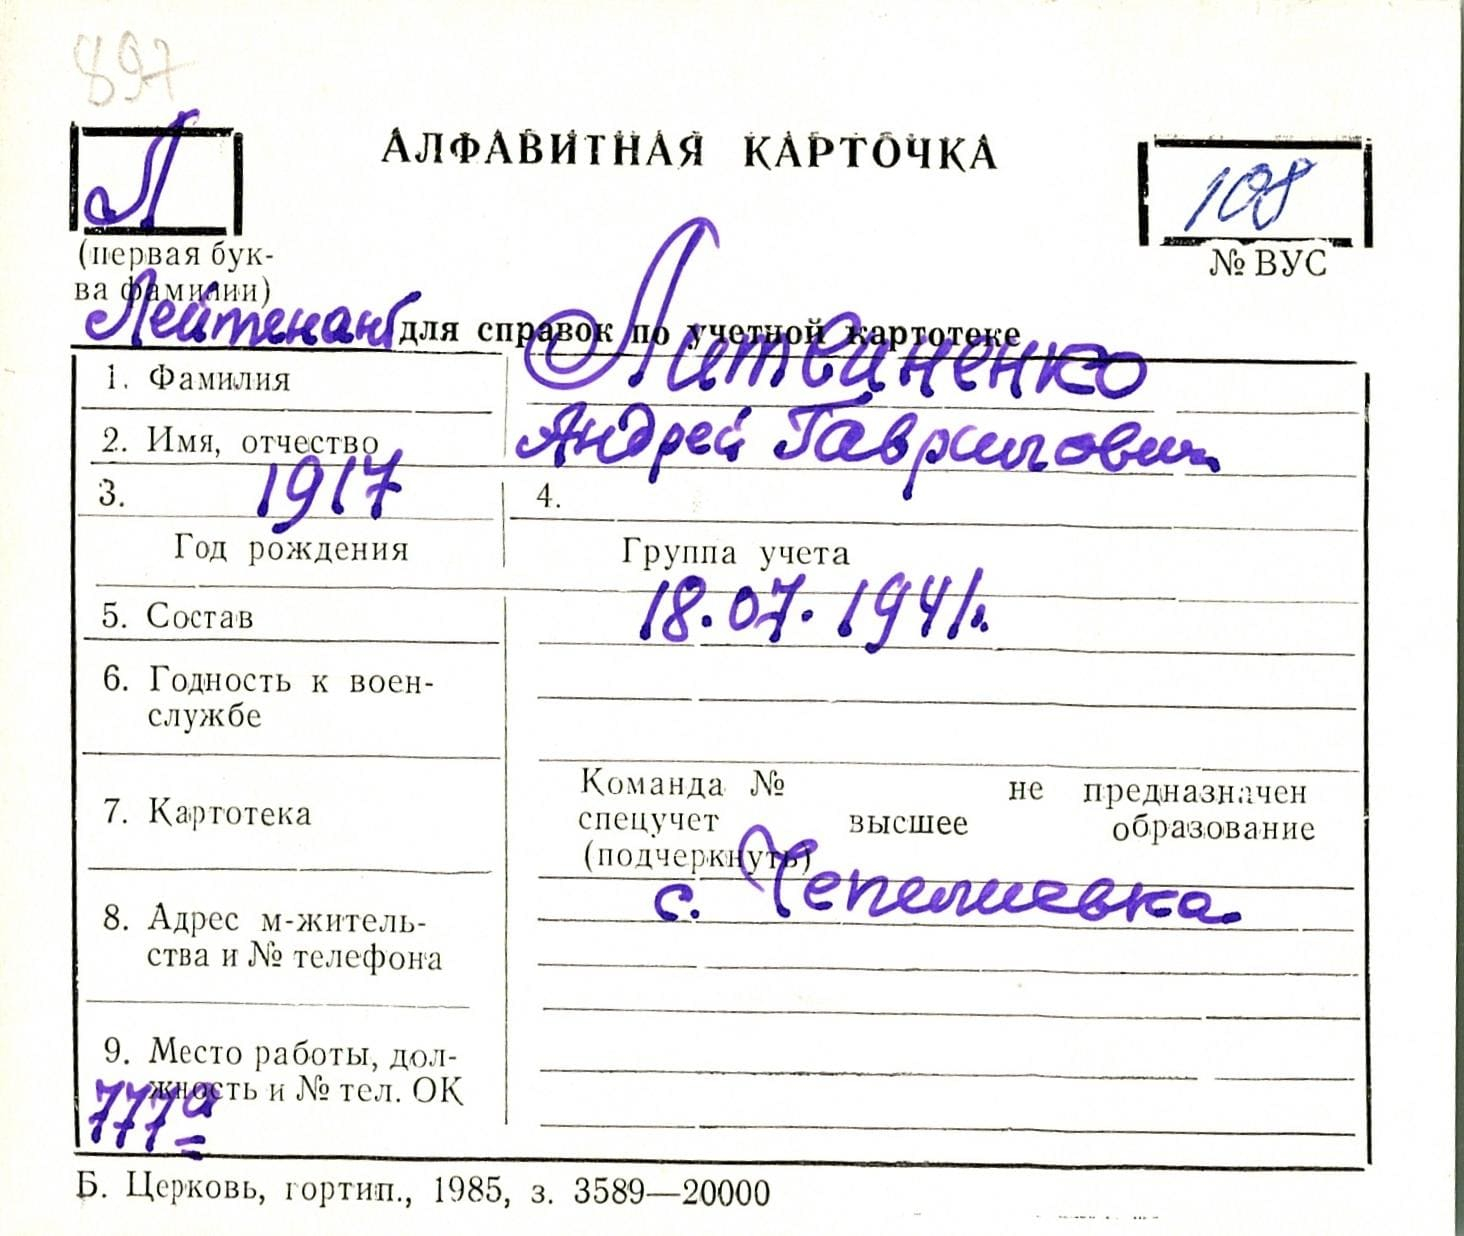 897
Л
АЛФАВИТНАЯ КАРТОЧКА
108
(первая бук-
ва фамилии)
№ ВУС
Лейтенант
для справок по учетной картотеке
1. Фамилия Литвиненко
2. Имя, отчество Андрей Гаврилович
3. 1917 4.
Год рождения Группа учета
5. Состав 18.07.1941.
6. Годность к воен-
службе
7. Картотека
Команда № не предназначен
спецучет высшее образование
(подчеркнуть)
8. Адрес м-житель-
ства и № телефона
с. Чепелиевка
9. Место работы, дол-
жность и № тел. ОК
777а
Б. Церковь, гортип., 1985, з. 3589—20000